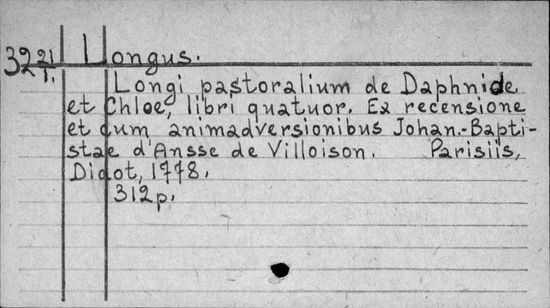 32 21/1. Longus.
Longi pastoralium de Daphnide
et Chloe, libri quatuor. Ex recensione
et cum animadversionibus Johan.-Bapti-
stae d'Ansse de Villoison. Parisiis,
Didot, 1778.
312 p.